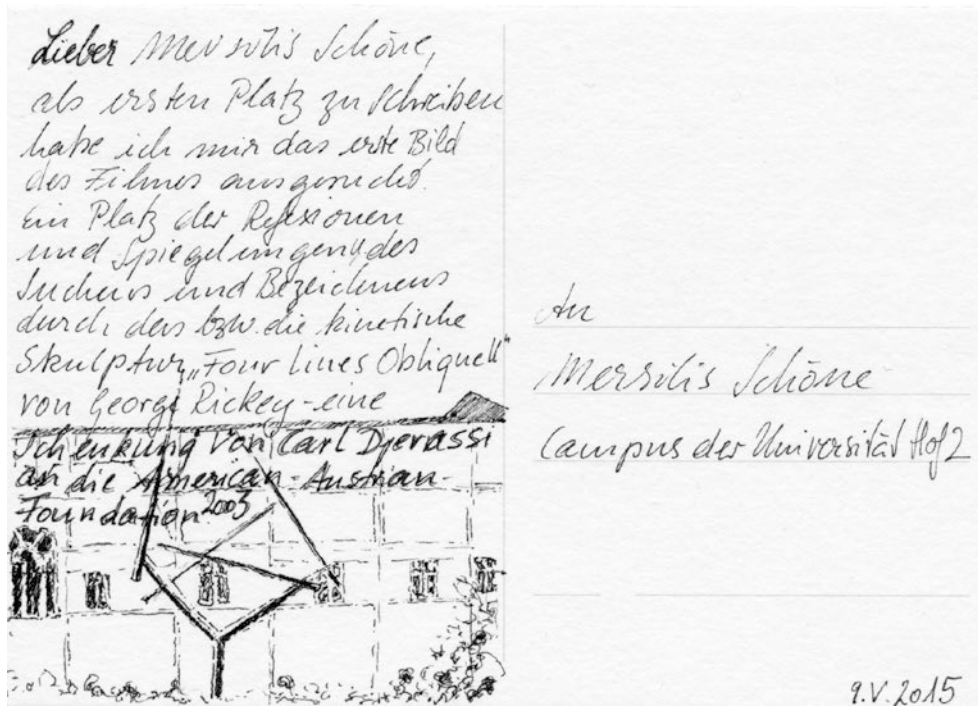 Lieber Mersolis Schöne,
als ersten Platz zu schreiben
habe ich mir das erste Bild
des Filmes ausgesucht.
Ein Platz der Reflexionen
und Spiegelungen, des
Suchens und Bezeichnens
durch den bzw. die kinetische
Skulptur „Four Lines Oblique II"
von George Rickey - eine
Schenkung von Carl Djerassi
an die American-Austrian-
Foundation 2003
An
Mersolis Schöne
Campus der Universität Hof 2
9.V.2015